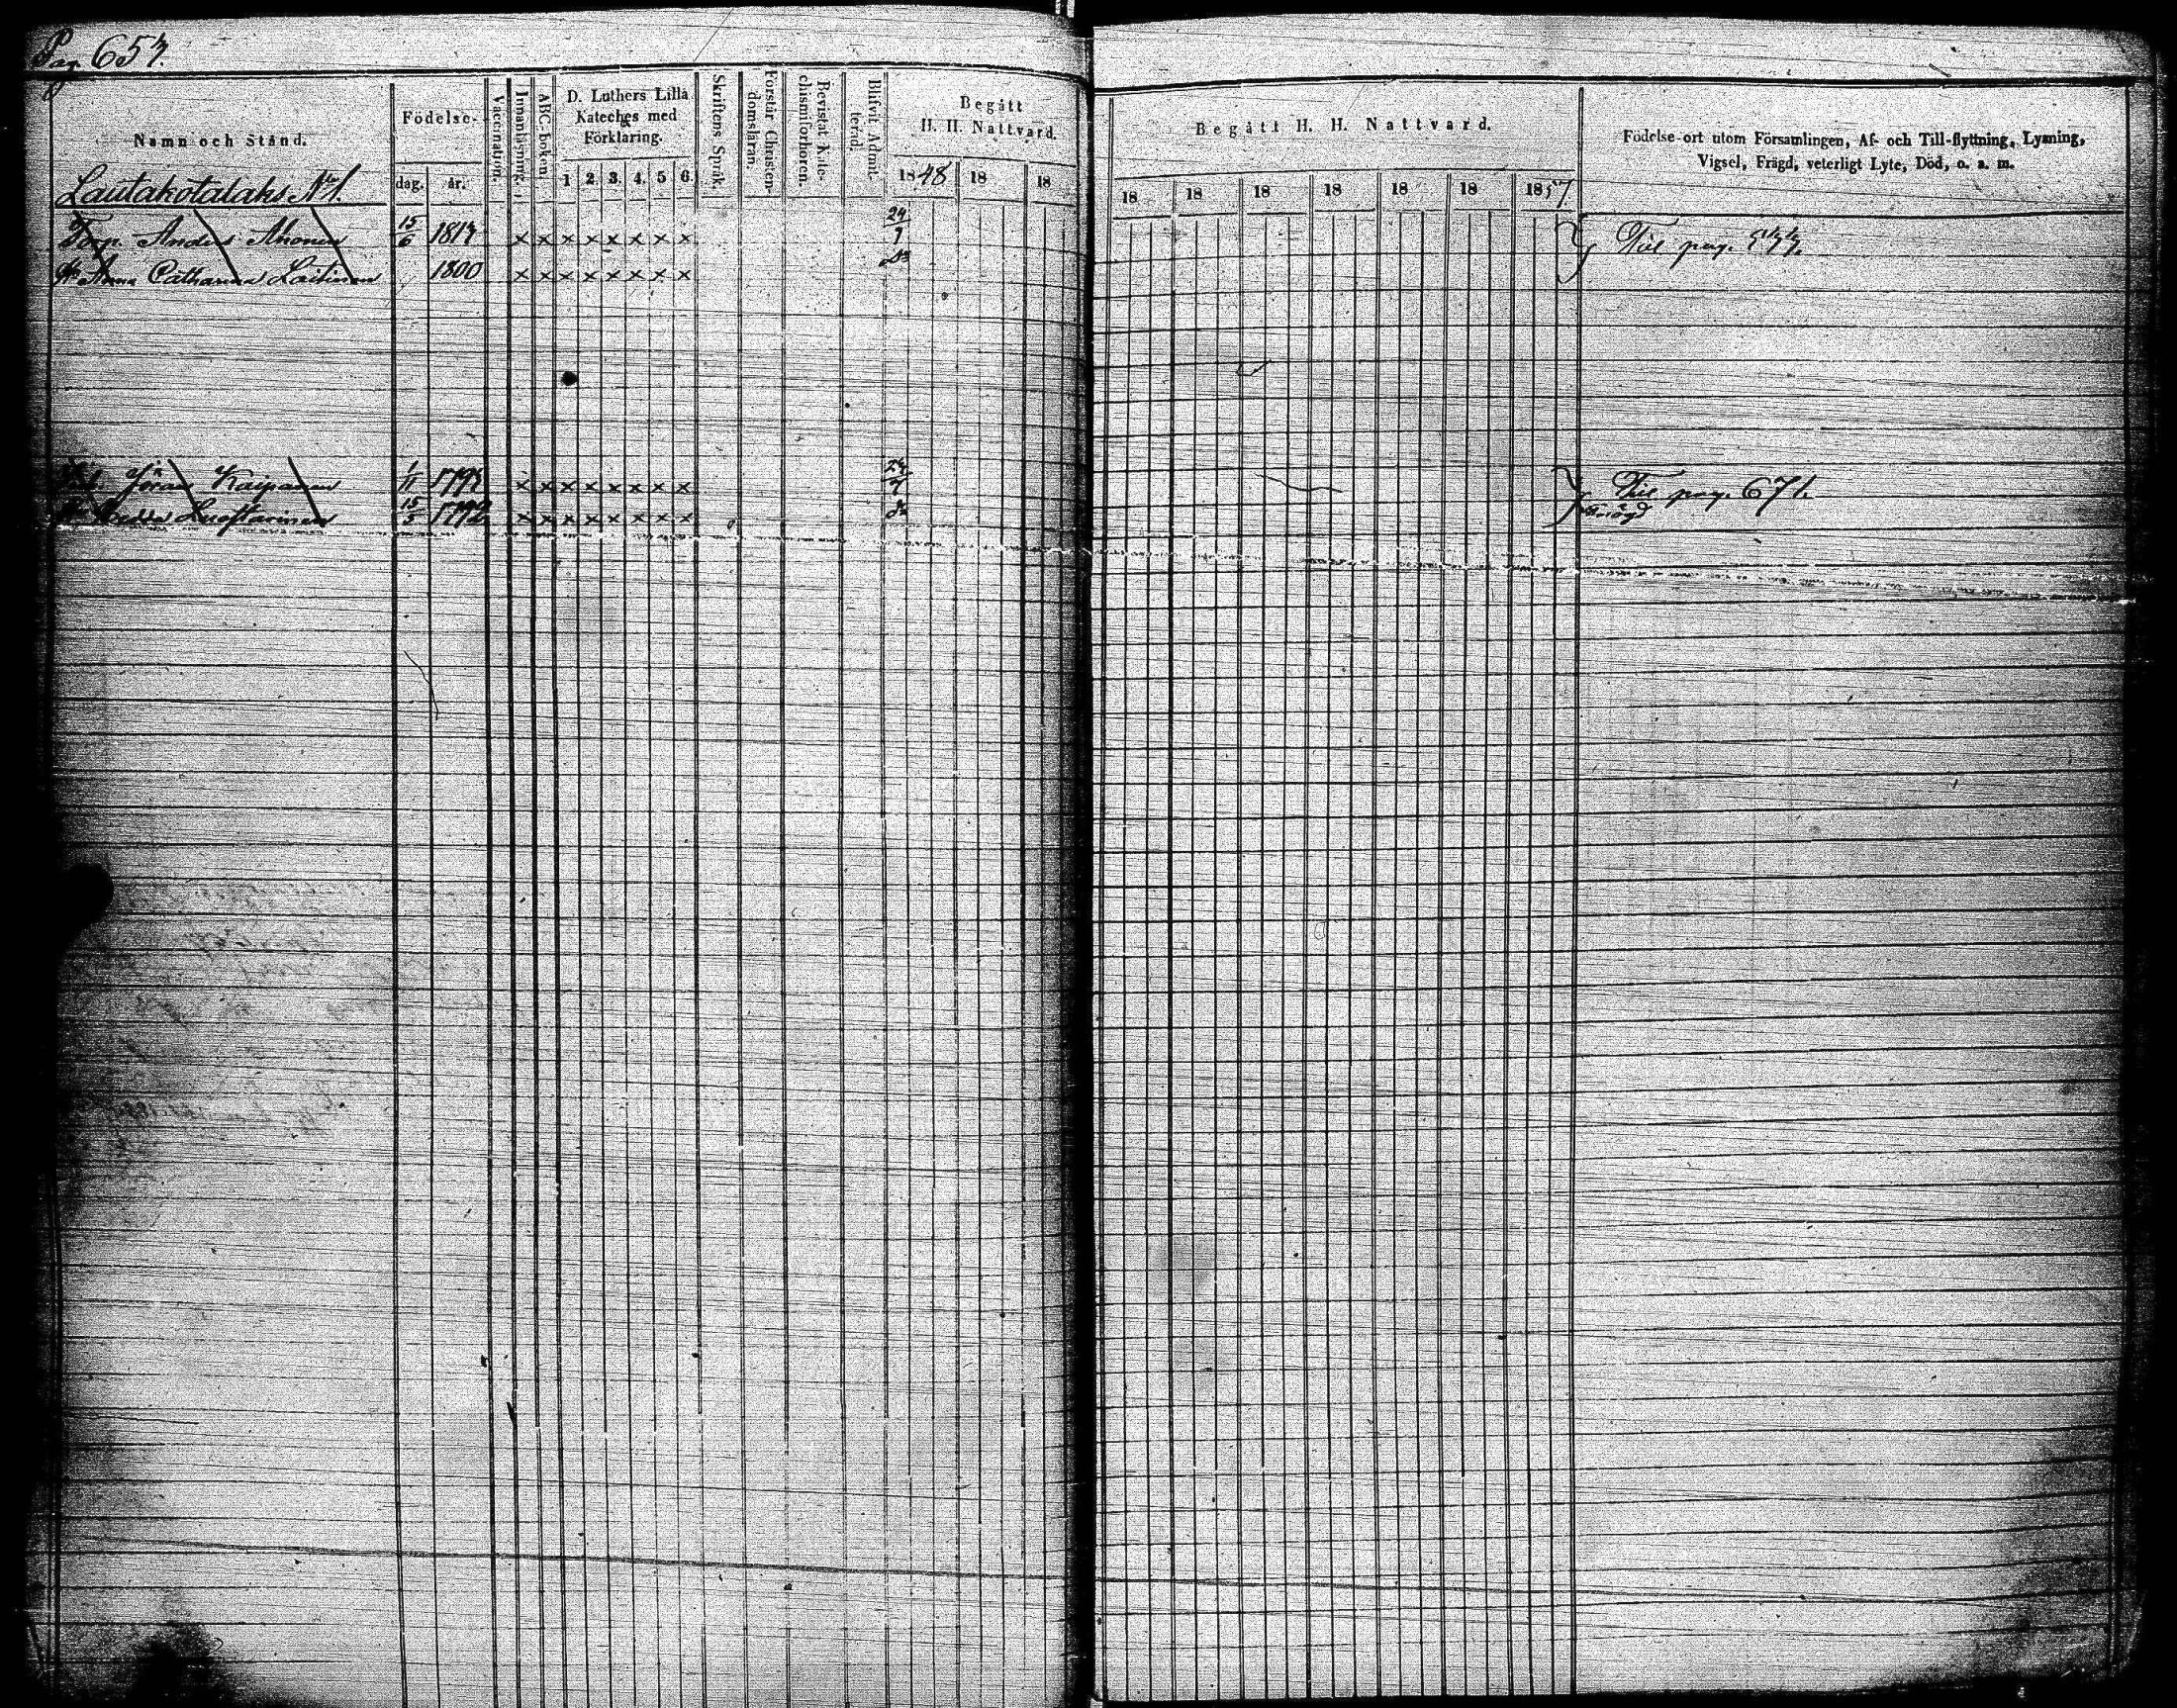 Pag 657.
Namn och Stånd.
Födelse-
dag. år.
Vaccination.
Innanläsning.
ABC-boken.
D. Luthers Lilla
Kateches med
Förklaring.
1 2. 3. 4. 5 6.
Skriftens Språk.
Förstår Christen-
domsläran.
Bevistat Kate-
chismiförhören.
Blifvit Admit-
terad.
Begått
H. H. Nattvard.
1848 18 18
Begått H. H. Nattvard.
18 18 18 18 18 18 1857
Födelse-ort utom Församlingen, Af- och Till-flyttning, Lysning,
Vigsel, Frägd, veterligt Lyte, Död, o. a. m.
Lautakotalaks No 1.
Torp. Anders Ahonen 15/6 1817 x x x x x x x x 24/9 Till pag.
Anna Catharina Laitinen 1800 x x x x x x x x
Göran Kaipainen 1/11 1793 x x x x x x x x 24 Till pag. 671.
Hedda 15/5 1792 x x x x x x x x